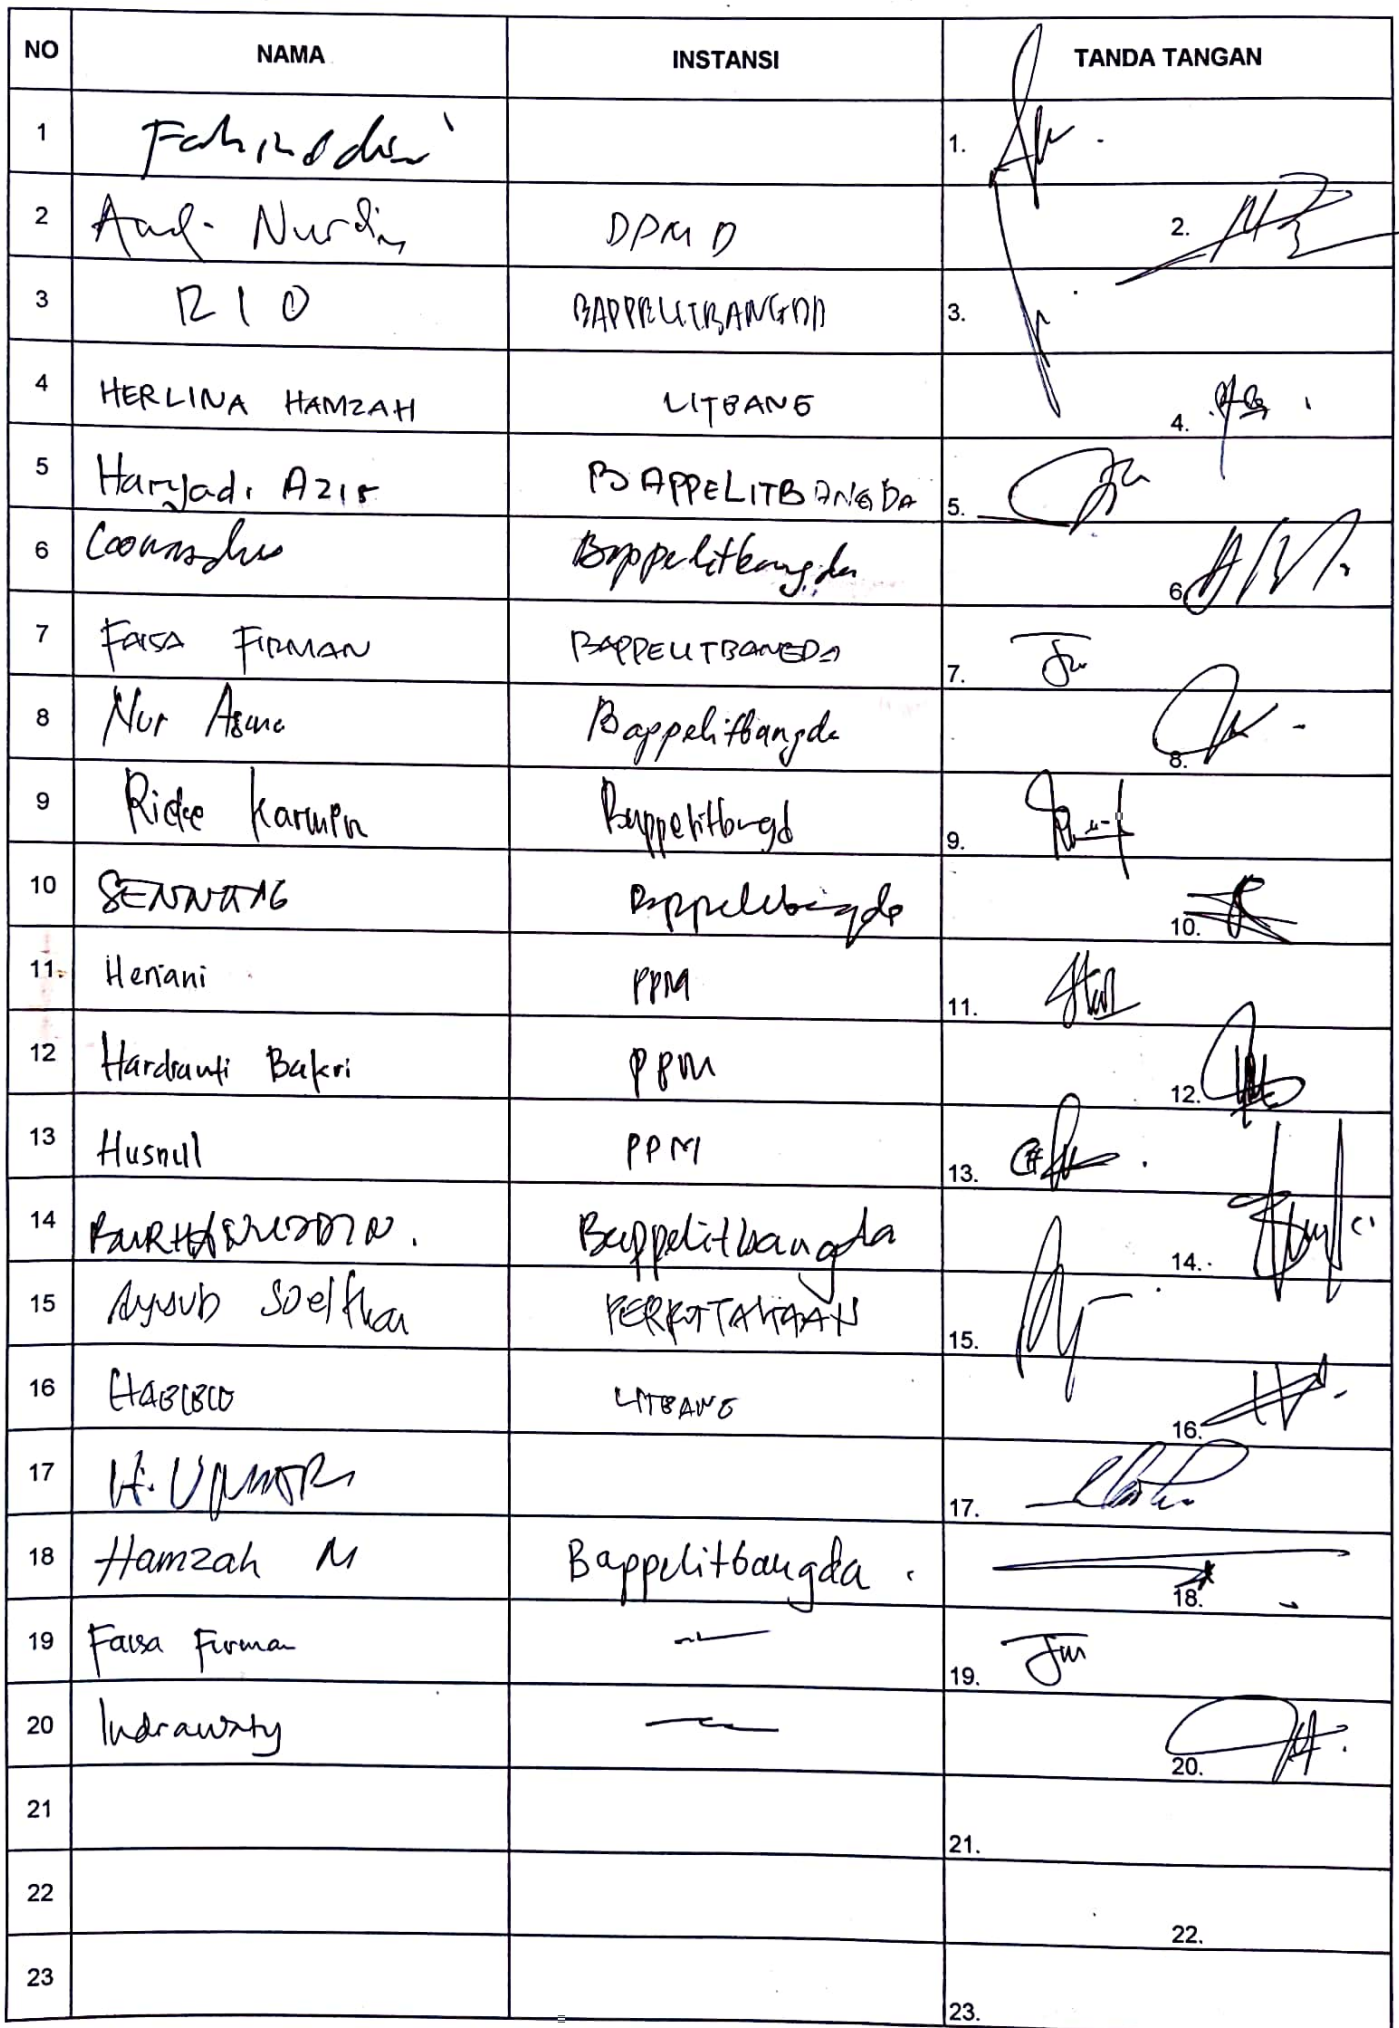 NO NAMA INSTANSI TANDA TANGAN
1 1.
2 Nurdin DPMD 2.
3 RIO BAPPELITBANGDA 3.
4 HERLINA HAMZAH LITBANG 4.
5 Haryadi Azis BAPPELITBANGDA 5.
6 Bappelitbangda 6.
7 FAISA FIRMAN BAPPELITBANGDA 7.
8 Nur Asma Bappelitbangda 8.
9 Bappelitbangd 9.
10 SENNANG Bappelitbangda 10.
11 Heriani PPM 11.
12 Hardianti Bakri PPM 12.
13 Husnul PPM 13.
14 BURHANUDDIN. Bappelitbangda 14.
15 15.
16 LITBANG 16.
17 H. UMAR 17.
18 Hamzah M Bappelitbangda. 18.
19 Faisa Firman — 19.
20 Indrawaty — 20.
21 21.
22 22.
23 23.